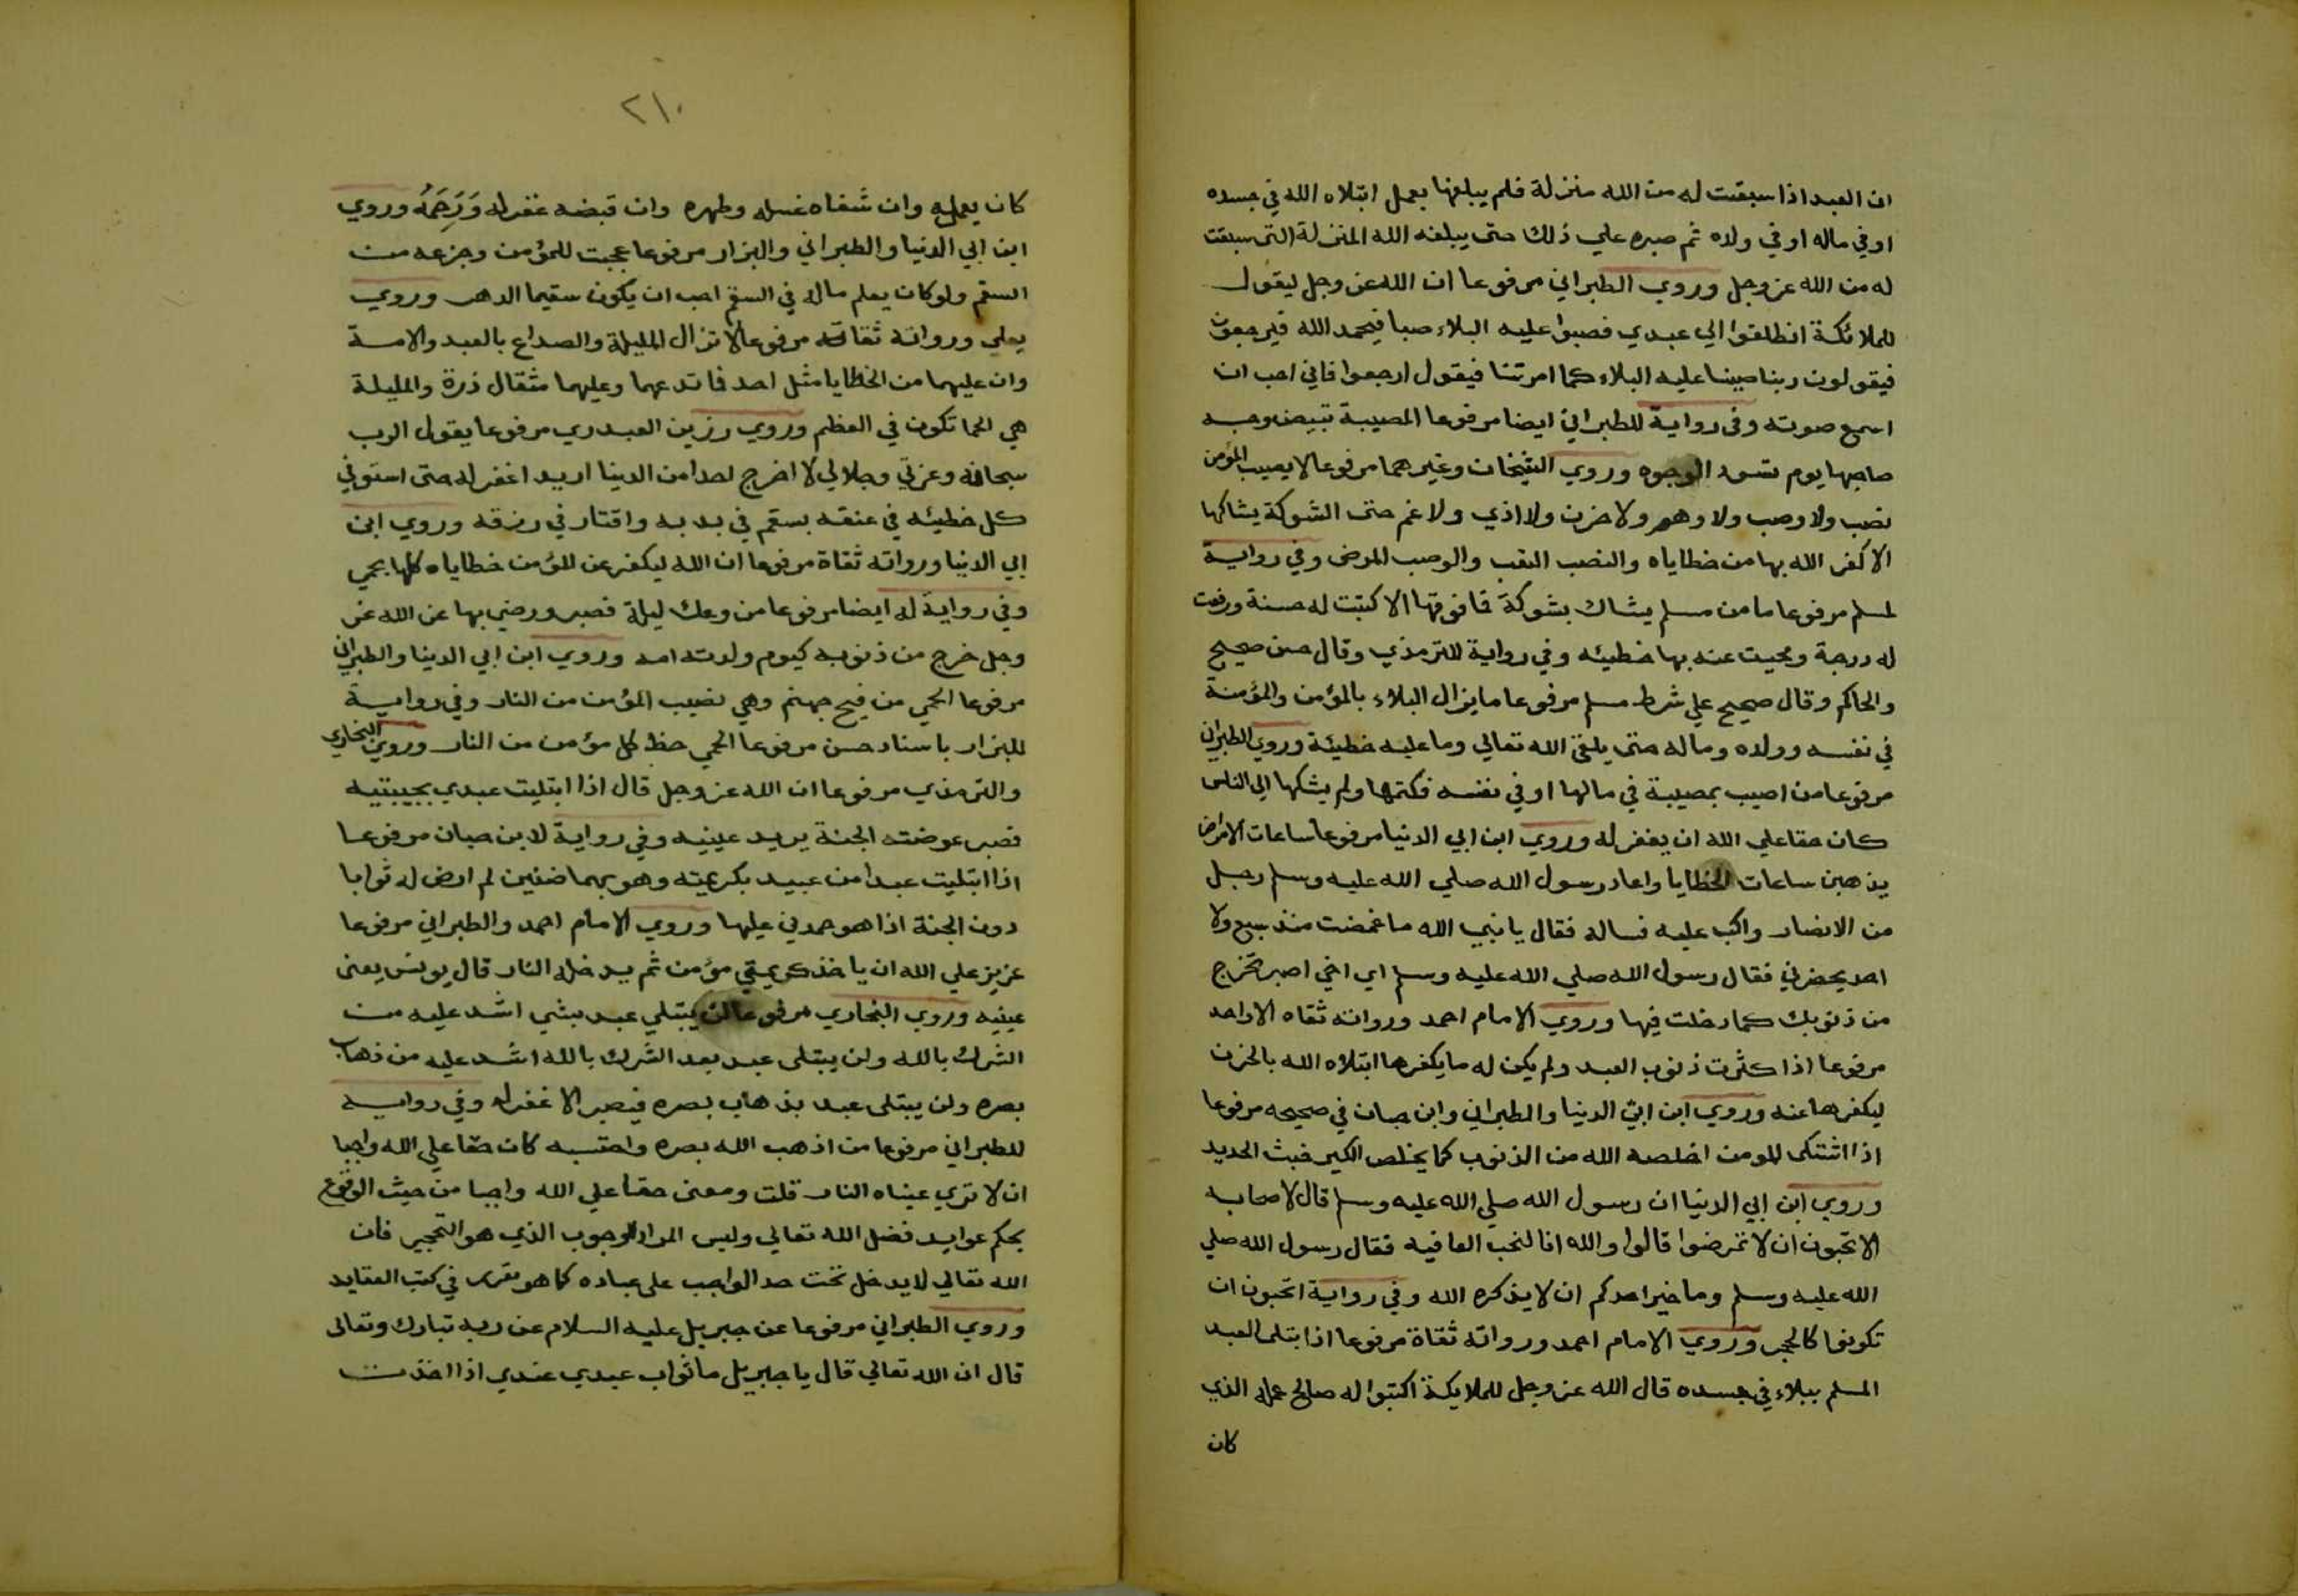 ان العبد اذا سبقت له من الله منزلة فلم يبلغها بعمل ابتلاه الله في جسده
او في ماله او في ولده ثم صبره علي ذلك حتى يبلغه الله المنزلة التي سبقت
له من الله عز وجل وروي الطبراني مرفوعا ان الله عز وجل ليقول
للملائكة انطلقوا الي عبدي فصبوا عليه البلاء صبا فيحمد الله فيرجعون
فيقولون ربنا صببنا عليه البلاء كما امرتنا فيقول ارجعوا فاني احب ان
اسمع صوته وفي رواية للطبراني ايضا مرفوعا المصيبة تبيض وجه
صاحبها يوم تسود الوجوه وروي الشيخان وغيرهما مرفوعا لا يصيب المؤمن
نصب ولا وصب ولا وهم ولا حزن ولا اذي ولا غم حتى الشوكة يشاكها
الا كفر الله بها من خطاياه والنصب التعب والوصب المرض وفي رواية
لمسلم مرفوعا ما من مسلم يشاك بشوكة فما فوقها الا كتبت له حسنة ورفعت
له درجة ومحيت عنه بها خطيئه وفي رواية للترمذي وقال حسن صحيح
والحاكم وقال صحيح علي شرط مسلم مرفوعا ما يزال البلاء بالمؤمن والمؤمنة
في نفسه وولده وماله حتى يلقى الله تعالي وما عليه خطيئة وروي الطبراني
مرفوعا من اصيب بمصيبة في مالها او في نفسه فكتمها ولم يشكها الي الناس
كان حقا علي الله ان يغفر له وروي ابن ابي الدنيا مرفوعا ساعات الامراض
يذهبن ساعات الخطايا واعاد رسول الله صلي الله عليه وسلم رجل
من الانصار واكب عليه فساله فقال يا نبي الله ما غمضت منذ سبع ولا
احد يحضرني فقال رسول الله صلي الله عليه وسلم اي اخي اصبر تخرج
من ذنوبك كما دخلت فيها وروي الامام احمد ورواته ثقاه الا واحد
مرفوعا اذا كثرت ذنوب العبد ولم يكن له ما يكفرها ابتلاه الله بالحزن
ليكفرها عنه وروي ابن ابي الدنيا والطبراني وابن حبان في صحيحه مرفوعا
اذا اشتكى المومن اخلصه الله من الذنوب كما يخلص الكير خبث الحديد
وروي ابن ابي الدنيا ان رسول الله صلي الله عليه وسلم قال لاصحابه
الا تحبون ان لا تمرضوا قالوا والله انا لنحب العافيه فقال رسول الله صلي
الله عليه وسلم وما خير احدكم ان لا يذكره الله وفي رواية اتحبون ان
تكونوا كالحجر وروي الامام احمد ورواته ثقاة مرفوعا اذا ابتلى العبد
المسلم ببلاء في جسده قال الله عز وجل للملايكة اكتبوا له صالح عمله الذي
كان
٢١٠
كان يعمله وان شفاه غسله وطهره وان قبضه غفر له وَرَحِمَهُ وروي
ابن ابي الدنيا والطبراني والبزار مرفوعا عجبت للمؤمن وجزعه من
السقم ولو كان يعلم ماله في السقم احب ان يكون سقيما الدهر وروي
يعلي ورواته ثقاته مرفوعا لا تزال المليلة والصداع بالعبد والامة
وان عليهما من الخطايا مثل احد فما تدعهما وعليهما مثقال ذرة والمليلة
هي الحما تكون في العظم وروي رزين العبدري مرفوعا يقول الرب
سبحانه وعزتي وجلالي لا اخرج احدا من الدنيا اريد اغفر له حتى استوفي
كل خطيئه في عنقه بسقم في بدنه واقتار في رزقه وروي ابن
ابي الدنيا ورواته ثقاة مرفوعا ان الله ليكفر عن المؤمن خطاياه كلها بحمي
وفي رواية له ايضا مرفوعا من وعك ليلة فصبر ورضي بها عن الله عز
وجل خرج من ذنوبه كيوم ولدته امه وروي ابن ابي الدنيا والطبراني
مرفوعا الحمي من فيح جهنم وهي نصيب المؤمن من النار وفي رواية
للبزار باسناد حسن مرفوعا الحمي حظ كل مؤمن من النار وروي البخاري
والترمذي مرفوعا ان الله عز وجل قال اذا ابتليت عبدي بحبيبتيه
فصبر عوضته الجنة يريد عينيه وفي رواية لابن حبان مرفوعا
اذا ابتليت عبدا من عبيد بكريمته وهو بهما ضنين لم ارض له ثوابا
دون الجنة اذا هو حمدني عليها وروي الامام احمد والطبراني مرفوعا
عزيز علي الله ان ياخذ كريمتي مؤمن ثم يدخله النار قال يونس يعنى
عينيه وروي البخاري مرفوعا لن يبتلي عبد بشي اشد عليه من
الشرك بالله ولن يبتلى عبد بعد الشرك بالله اشد عليه من ذهاب
بصره ولن يبتلى عبد بذهاب بصره فيصبر الا غفر له وفي رواية
للطبراني مرفوعا من اذهب الله بصره واحتسبه كان حقا علي الله واجبا
ان لا تري عيناه النار قلت ومعنى حقا علي الله واجبا من حيث الوقوع
بحكم عوايد فضل الله تعالي وليس المراد الوجوب الذي هو التحجير فان
الله تعالي لا يدخل تحت حد الواجب على عباده كما هو مقرر في كتب العقايد
وروي الطبراني مرفوعا عن جبريل عليه السلام عن ربه تبارك وتعالى
قال ان الله تعالي قال يا جبريل ما ثواب عبدي عندي اذا اخذت